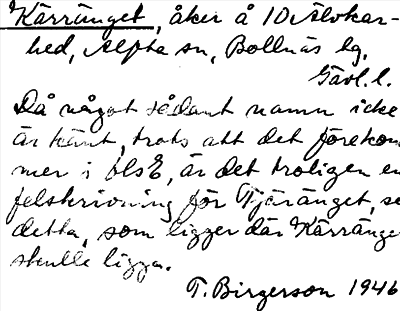 Kärränget, åker å 10 Älvkar-
hed, Alfta sn, Bollnäs lg,
Gävl. l.
Då något sådant namn icke
är känt, trots att det förekom
mer i blsE, är det troligen en
felskrivning för Tjäränget, se
detta, som ligger där Kärränge
skulle ligga.
T. Birgerson 1946